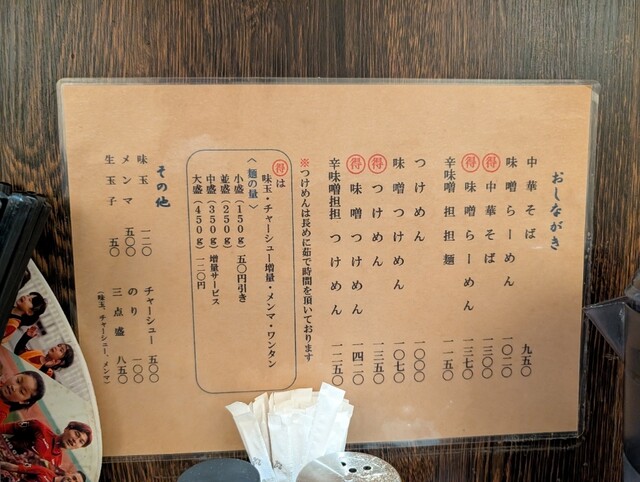 おしながき
中華そば 九五〇
味噌らーめん 一〇二〇
得 中華そば 一三〇〇
得 味噌らーめん 一三七〇
辛味噌 担担麺 一一五〇
つけめん 一〇〇〇
味噌つけめん 一〇七〇
得 つけめん 一三五〇
得 味噌つけめん 一四二〇
辛味噌担担 つけめん 一二五〇
※つけめんは長めに茹で時間を頂いております
得は
味玉・チャーシュー増量・メンマ・ワンタン
〈麺の量〉
小盛(150g)五〇円引き
並盛(250g)
中盛(350g)増量サービス
大盛(450g)一二〇円
その他
味玉 一二〇
メンマ 五〇〇
生玉子 五〇
チャーシュー 五〇〇
のり 一〇〇
三点盛 八五〇
(味玉、チャーシュー、メンマ)